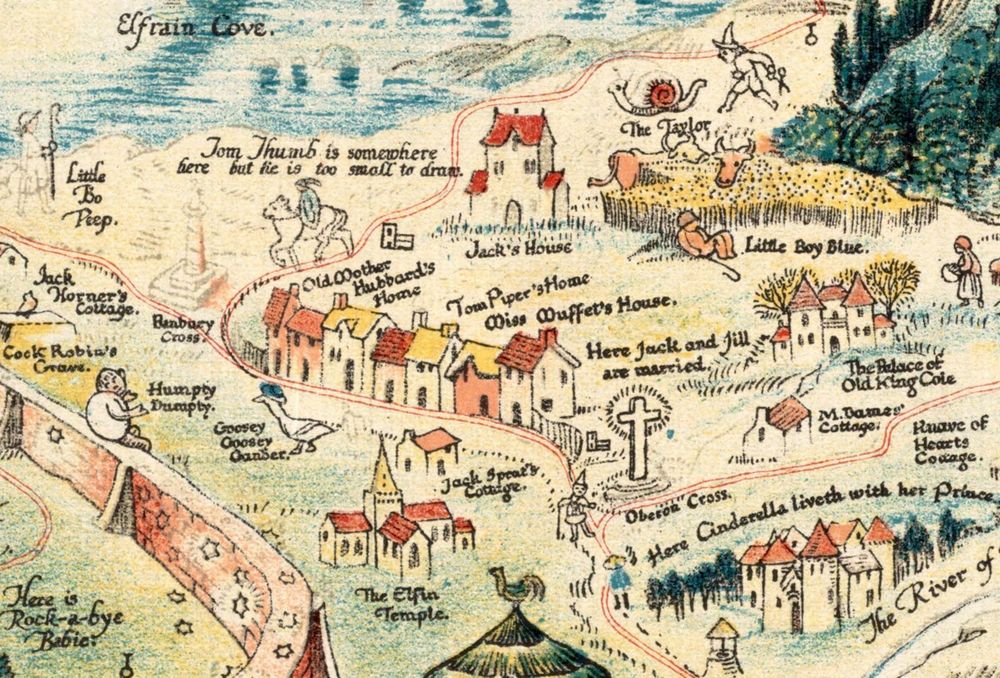 Elfrain Cove.
The Taylor
Tom Thumb is somewhere
here but he is too small to draw.
Little
Bo
Peep.
Jack's House
Little Boy Blue.
Jack
Horner's
Cottage.
Old Mother
Hubbard's
Home
Tom Piper's Home
Miss Muffet's House.
Banbury
Cross.
Here Jack and Jill
are married.
The Palace of
Old King Cole
Cock Robin's
Grave.
Humpty
Dumpty.
Goosey
Goosey
Gander.
M. Dames'
Cottage.
Knave of
Hearts
Cottage.
Jack Sprat's
Cottage.
Oberon Cross.
Here Cinderella liveth with her Prince
The Elfin
Temple.
The River of
Here is
Rock-a-bye
Babie.